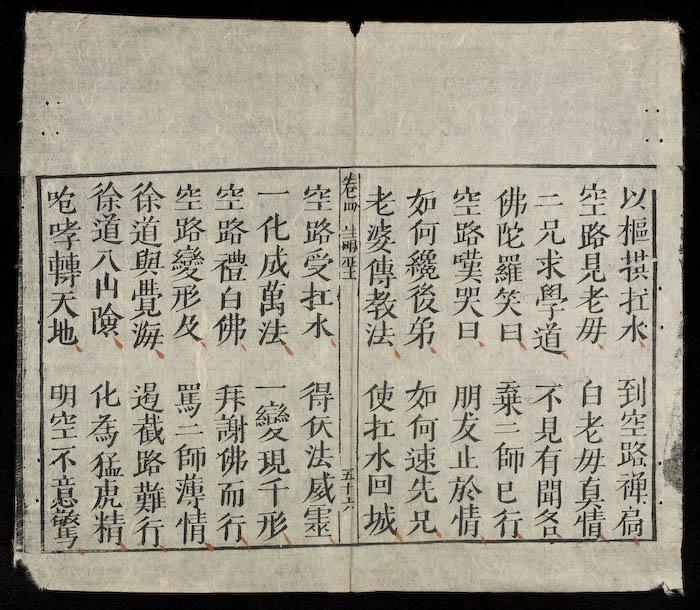 以樞拱扛水　到空路禅扃
空路見老毋　白老毋真情
二兄求學道　不見有聞名
佛陀羅笑曰　棄二師㔾行
空路嘆哭曰　朋友止於情
如何纔後弟　如何速先兄
老婆傳教法　使扛水回城
卷四　五十六
空路受扛水　得仗法威霊
一化成萬法　一變現千形
空路禮白佛　拜謝佛而行
空路變形及　罵二師薄情
徐道與覺海　遏截路難行
徐道入山險　化為猛虎精
咆哮轉天地　明空不意驚